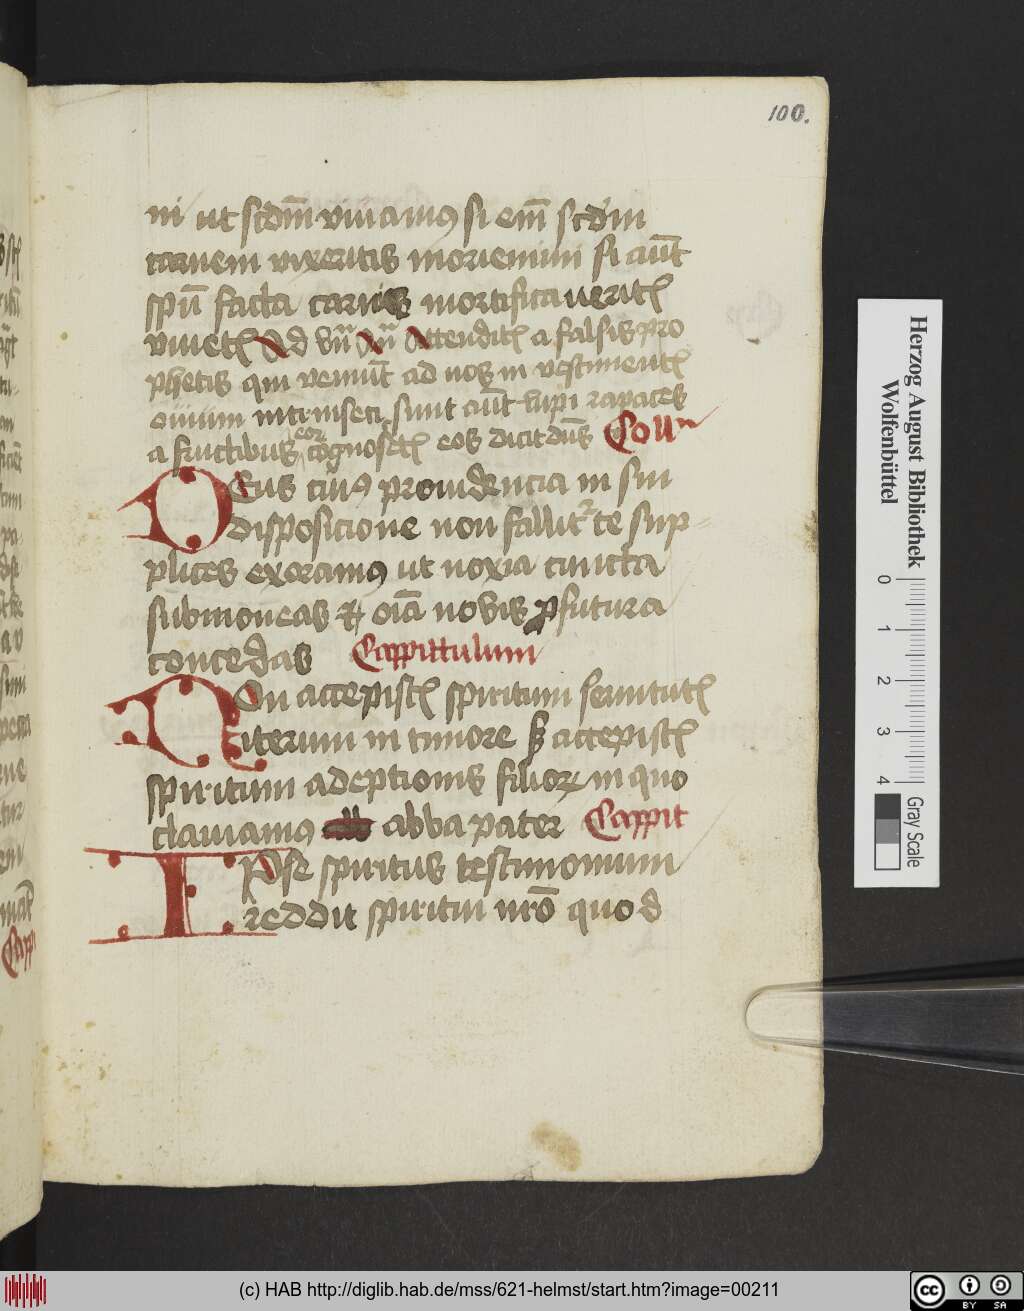 100.
ni ut scdm̄ viuamus si em̄ scdm
carnem vixeritis moriemini si aūt
spū facta carnis mortificaueritis
viuetis Ad Attenditis a falsis pro
phetis qui veniūt ad nos in vestimentis
ouium intrinseci sunt aūt lupi rapaces
a fructibus eor cognoscetis eos dicit dūs Coll
Deus cuius prouidencia in sui
disposicione non fallitur te sup=
plices exoramus ut noxia cuncta
submoneas et oīa nobis ꝓfutura
concedas Cappittulum
Non accepistis spiritum seruitutis
iterum in timore sꝫ accepistis
spiritum adeptionis filioꝝ in quo
clamamus abba pater Cappit
Ipse spiritus testimonium
reddit spiritui nrō quod
Herzog August Bibliothek
Wolfenbüttel
0 1 2 3 4
Gray Scale
(c) HAB http://diglib.hab.de/mss/621-helmst/start.htm?image=00211
cc BY SA